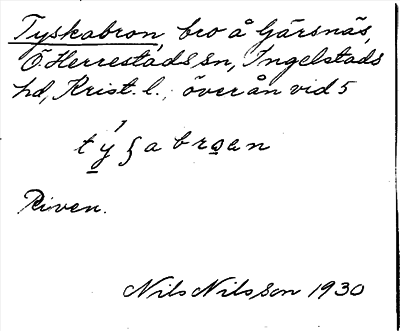 Tyskabron, bro å Gärsnäs,
Ö. Herrestads sn, Ingelstads
hd, Krist. l., över ån vid 5
tý̠ʒabroen
Riven.
Nils Nilsson 1930